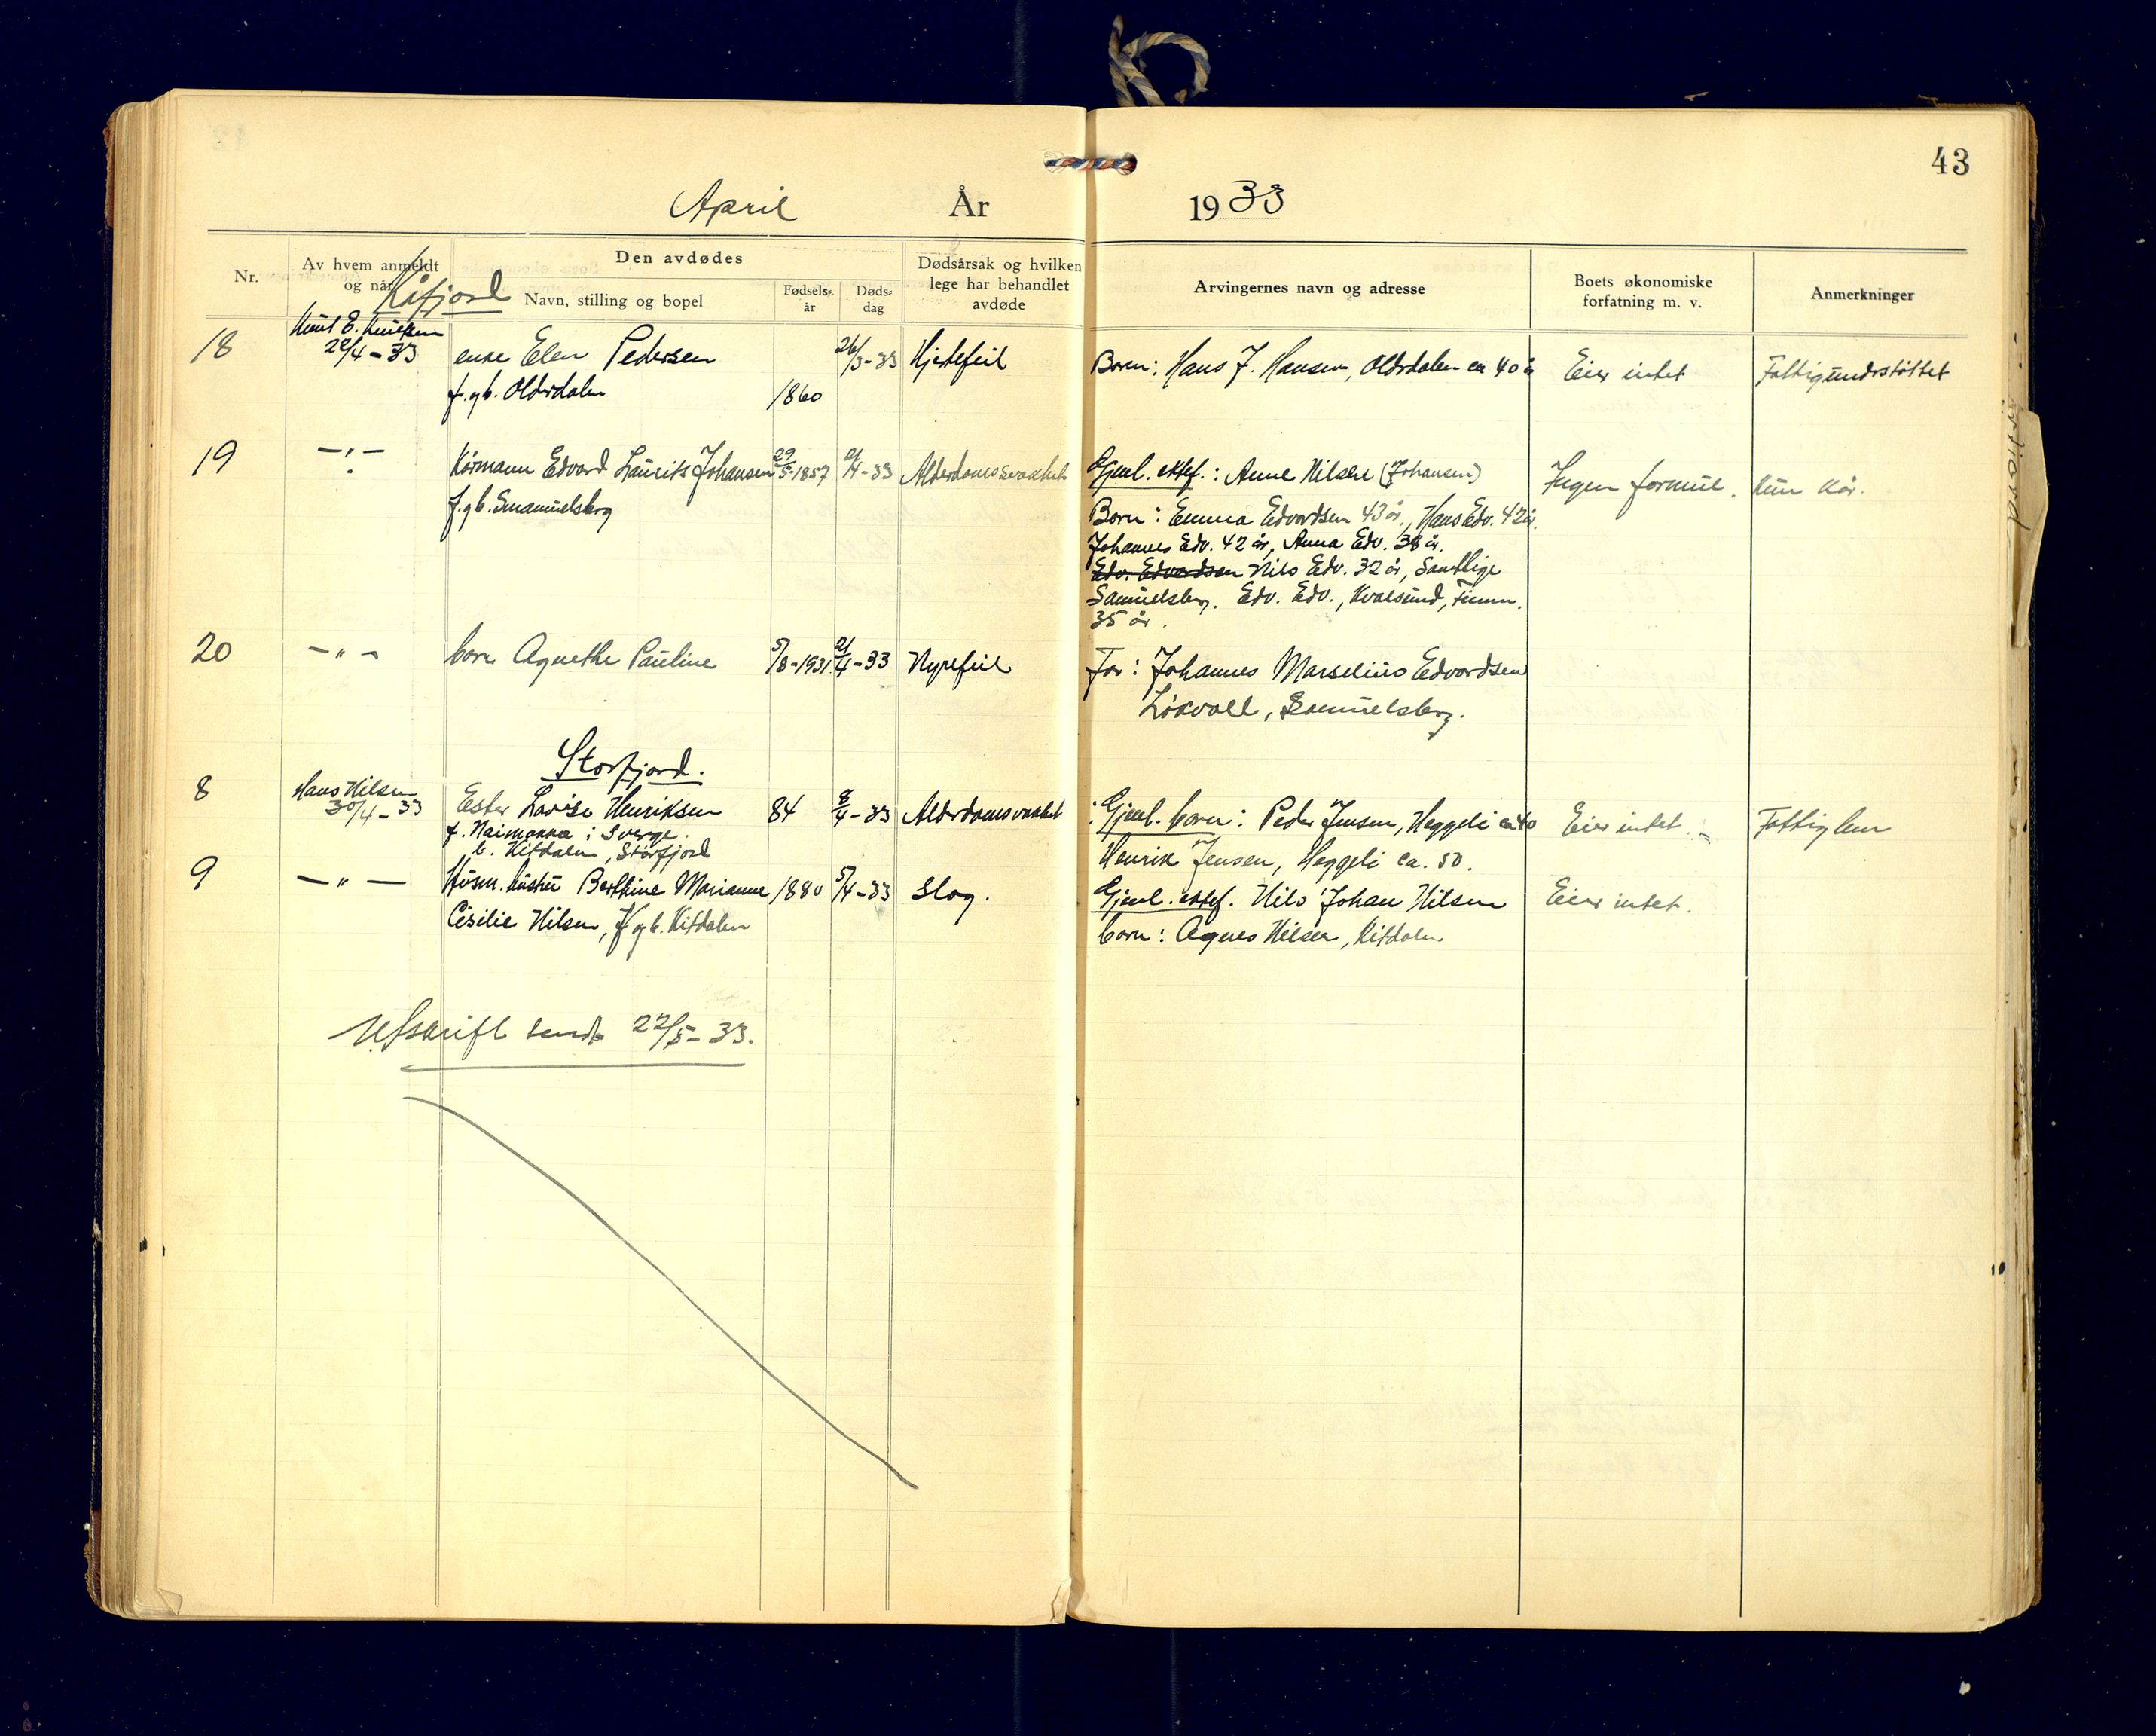 43
April År 1933
Nr. Av hvem anmeldt og når Den avdødes Navn, stilling og bopel Fødsels-år Døds-dag Dødsårsak og hvilken lege har behandlet avdøde Arvingernes navn og adresse Boets økonomiske forfatning m. v. Anmerkninger
Kåfjord
18 Knut E. Knutsen 22/4-33 enke Elen Pedersen 26/3-33 Hjertefeil Born: Hans J. Hansen, Olderdalen ca 40 å Eier intet Fattigunderstøttet
f. og b. Olderdalen 1860
19 -"- Kårmann Edvard Laurits Johansen 29/5-1857 2/4-33 Alderdomssvakhet Gjenl. ektef.: Anne Nilsen (Johansen) Ingen formue. kun kår.
f. og b. Smamuelsberg Born: Emma Edvardsen 43 år, Hans Edv. 42 år.
Johannes Edv. 42 år, Anna Edv. 38 år.
Edv. Edvardsen Nils Edv. 32 år, Samtlige
Samuelsberg. Edv. Edv., Kvalsund, Finnm.
35 år.
20 -"- born Agnethe Pauline 5/8-1931 21/4-33 Nyrefeil Far: Johannes Marselius Edvardsen
Løkvoll, Samuelsberg.
Storfjord.
8 Hans Nilsen 30/4-33 Ester Lovise Henriksen 84 8/4-33 Alderdomsvakhet Gjenl. born: Peder Jensen, Heggeli ca 40 Eier intet. Fattiglem
f. Naimakka i Sverge. Henrik Jensen, Heggeli ca. 50.
b. Kitdalen, Storfjord
9 -"- Husm. hustru Berthine Marianne 1880 5/4-33 Slag. Gjenl. ektef. Nils Johan Nilsen Eier intet.
Cisilie Nilsen, f og b. Kitdalen born: Agnes Nilsen, Kitdalen
Utskrift sendt 22/5-33.